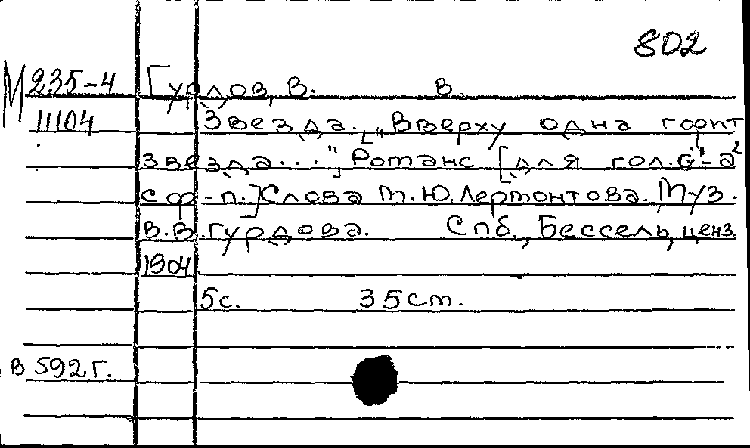 802
М 235-4 Гурдов, В. В.
11104 Звезда. „Вверху одна горит
звезда..." Романс [для гол. G¹-a²
с ф-п.] Слова М.Ю. Лермонтова. Муз.
В.В. Гурдова. Спб., Бессель, ценз.
1904
5с. 35см.
В 592г.